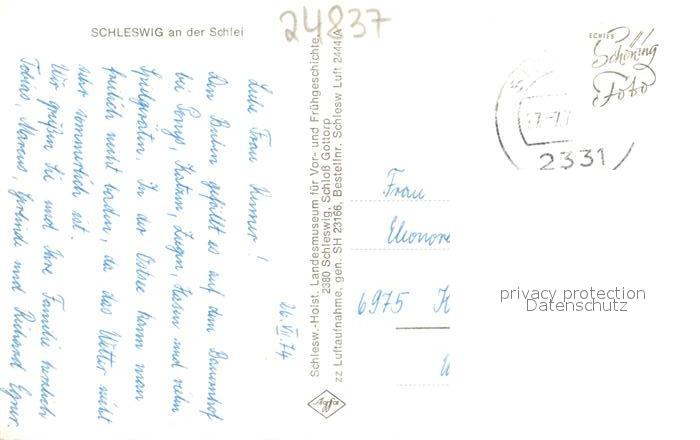 SCHLESWIG an der Schlei
24837
26.VII.74
Liebe Frau
Den Buben gefällt es auf dem Bauernhof
bei Ponys, Katzen, Ziegen, Hasen und vielen
Spielgeräten. In der Ostsee kann man
freilich nicht baden, da das Wetter nicht
sehr sommerlich ist.
Wir grüßen Sie und Ihre Familie herzlich
Tobias, Marcus, Gerlinde und Richard
Schlesw.-Holst. Landesmuseum für Vor- und Frühgeschichte,
2380 Schleswig, Schloß Gottorp
zz Luftaufnahme, gen. SH 23166, Bestellnr. Schlesw Luft 2444/A
Agfa
ECHTES
Schöning
Foto
-7.7
2331
Frau
Eleonore
6975 K
privacy protection
Datenschutz